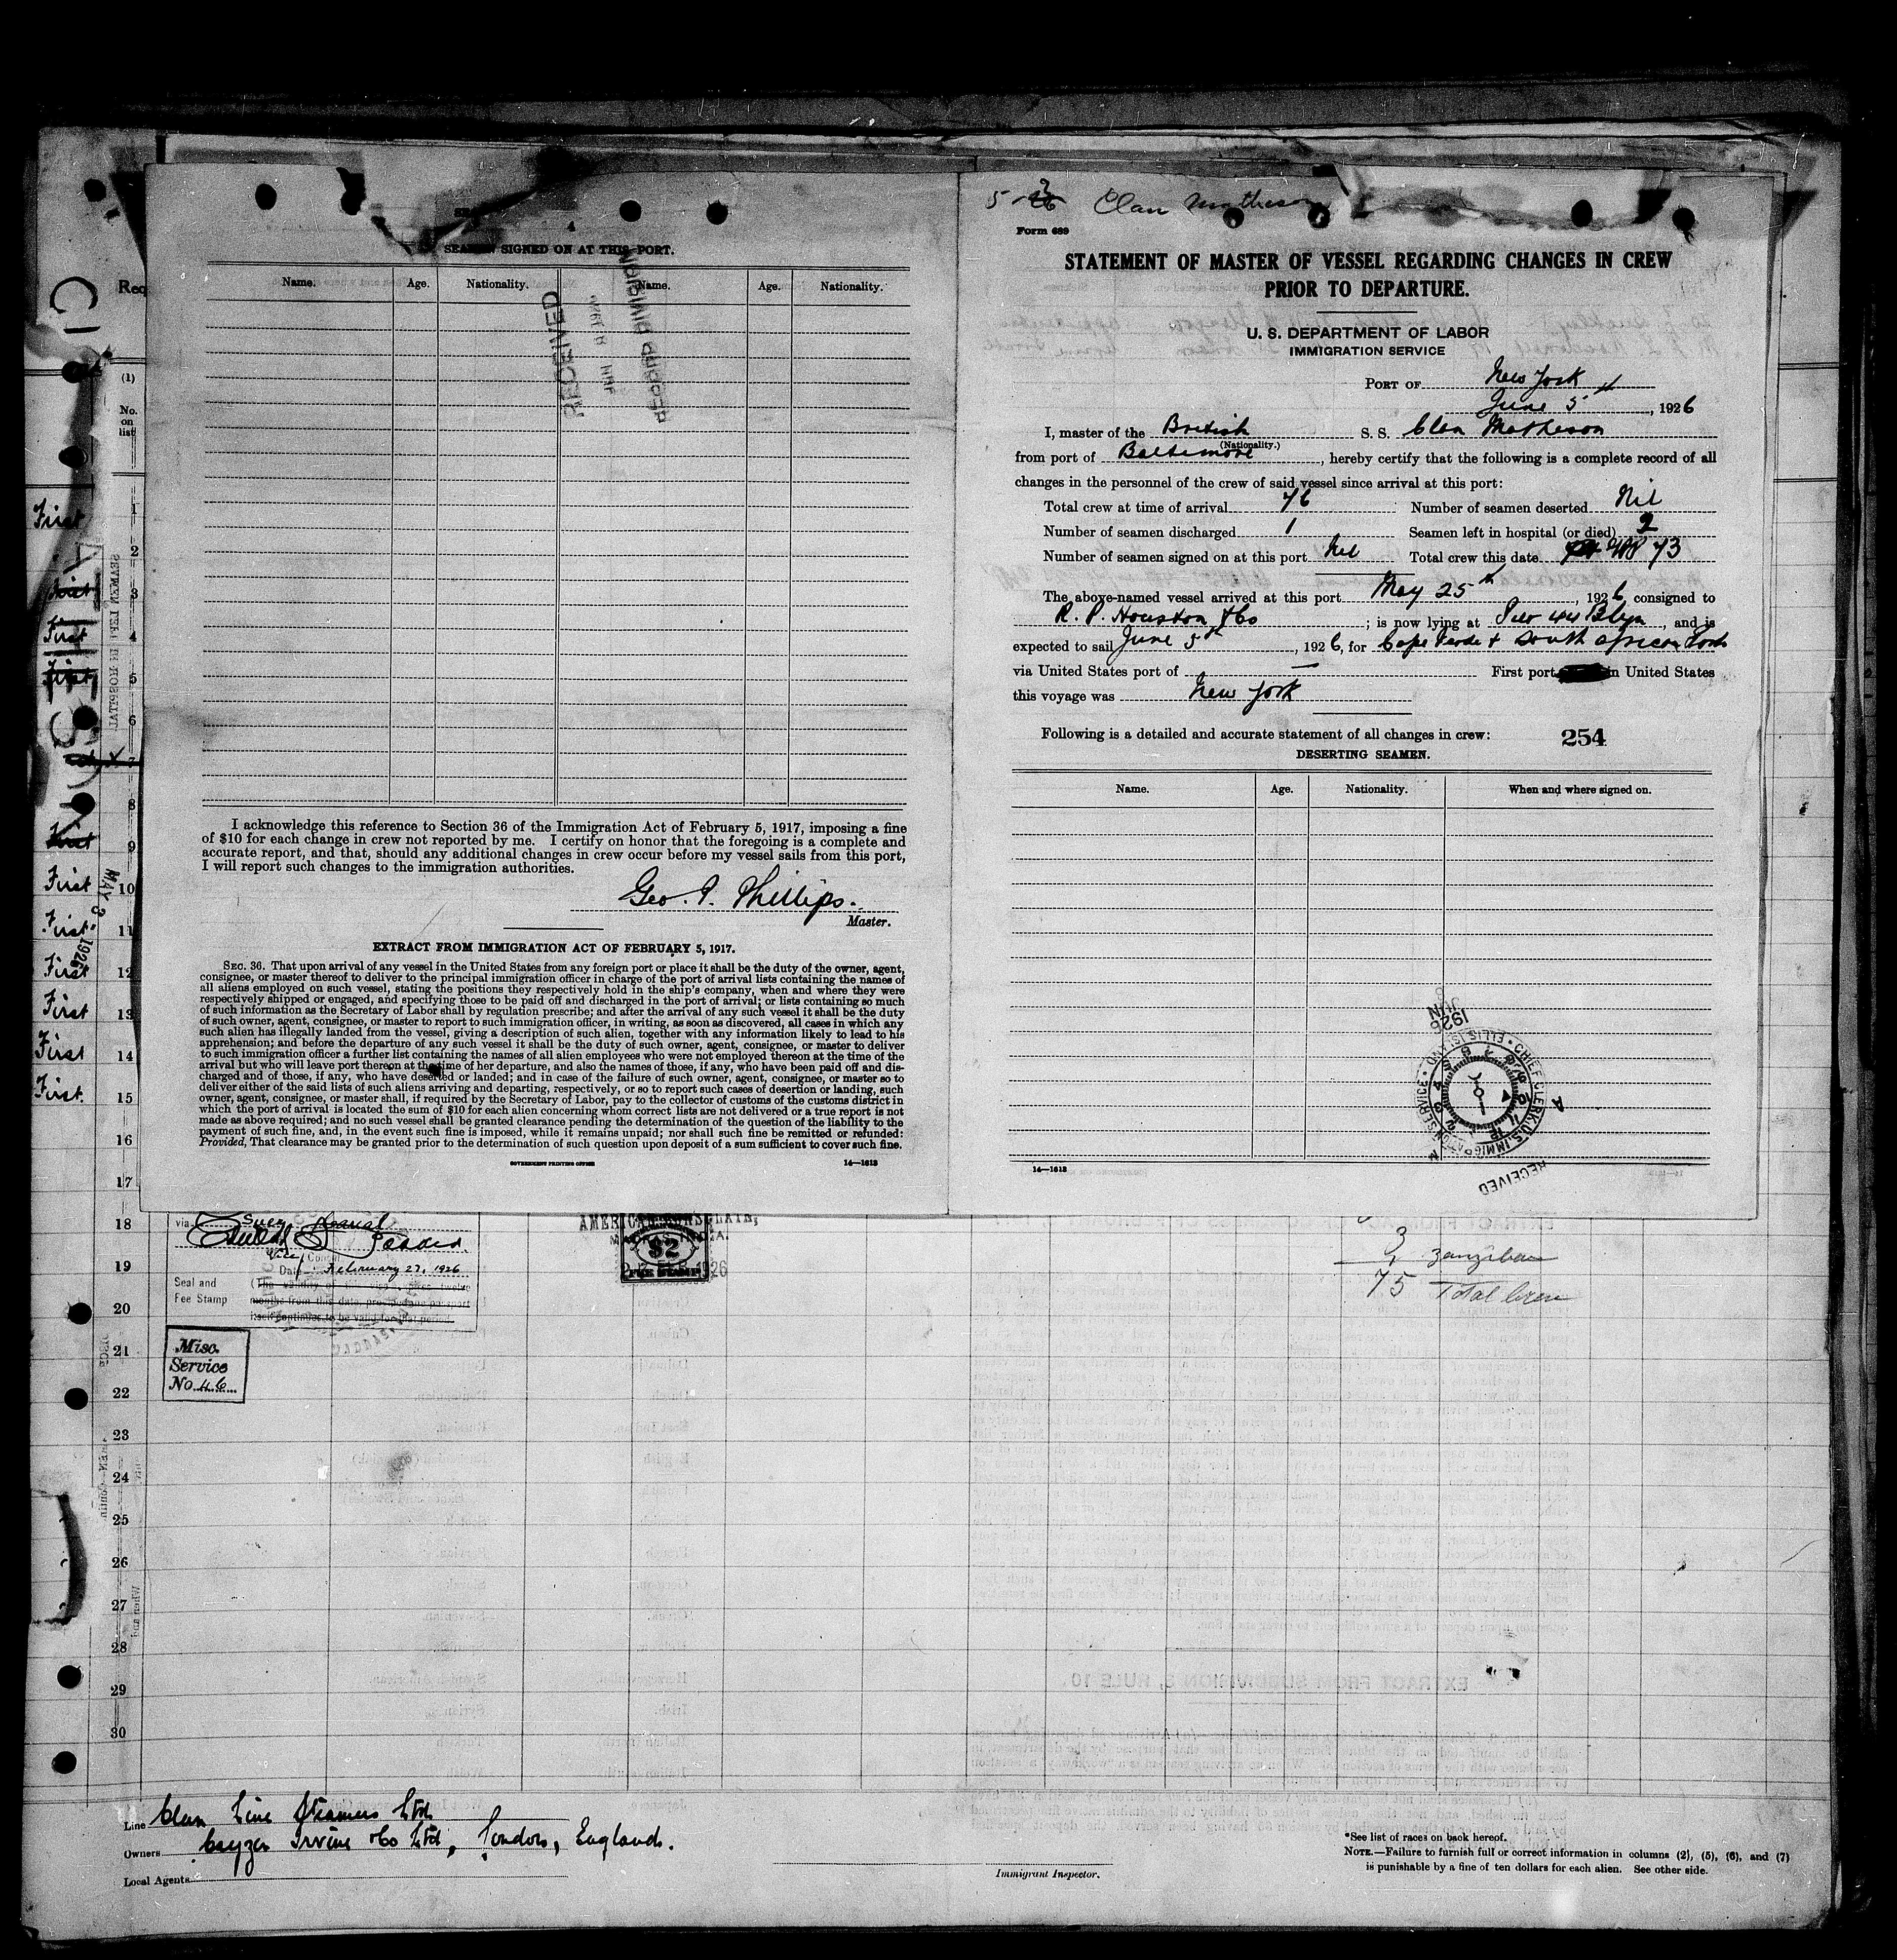 SEAMEN SIGNED ON AT THIS PORT.
Name. Age. Nationality. Name. Age. Nationality.
RECEIVED
JUN 8 1926
RECORD DIVISION
I acknowledge this reference to Section 36 of the Immigration Act of February 5, 1917, imposing a fine
of $10 for each change in crew not reported by me. I certify on honor that the foregoing is a complete and
accurate report, and that, should any additional changes in crew occur before my vessel sails from this port,
I will report such changes to the immigration authorities.
Geo. P. Phillips.
Master.
EXTRACT FROM IMMIGRATION ACT OF FEBRUARY 5, 1917.
SEC. 36. That upon arrival of any vessel in the United States from any foreign port or place it shall be the duty of the owner, agent,
consignee, or master thereof to deliver to the principal immigration officer in charge of the port of arrival lists containing the names of
all aliens employed on such vessel, stating the positions they respectively hold in the ship's company, when and where they were
respectively shipped or engaged, and specifying those to be paid off and discharged in the port of arrival; or lists containing so much
of such information as the Secretary of Labor shall by regulation prescribe; and after the arrival of any such vessel it shall be the duty
of such owner, agent, consignee, or master to report to such immigration officer, in writing, as soon as discovered, all cases in which any
such alien has illegally landed from the vessel, giving a description of such alien, together with any information likely to lead to his
apprehension; and before the departure of any such vessel it shall be the duty of such owner, agent, consignee, or master to deliver
to such immigration officer a further list containing the names of all alien employees who were not employed thereon at the time of the
arrival but who will leave port thereon at the time of her departure, and also the names of those, if any, who have been paid off and dis-
charged and of those, if any, who have deserted or landed; and in case of the failure of such owner, agent, consignee, or master so to
deliver either of the said lists of such aliens arriving and departing, respectively, or so to report such cases of desertion or landing, such
owner, agent, consignee, or master shall, if required by the Secretary of Labor, pay to the collector of customs of the customs district in
which the port of arrival is located the sum of $10 for each alien concerning whom correct lists are not delivered or a true report is not
made as above required; and no such vessel shall be granted clearance pending the determination of the question of the liability to the
payment of such fine, and, in the event such fine is imposed, while it remains unpaid; nor shall such fine be remitted or refunded:
Provided, That clearance may be granted prior to the determination of such question upon deposit of a sum sufficient to cover such fine.
GOVERNMENT PRINTING OFFICE 14—1613
Clan Matheson
Form 689
STATEMENT OF MASTER OF VESSEL REGARDING CHANGES IN CREW
PRIOR TO DEPARTURE.
U. S. DEPARTMENT OF LABOR
IMMIGRATION SERVICE
PORT OF New York
June 5th, 1926
I, master of the British S. S. Clan Matheson
(Nationality.)
from port of Baltimore, hereby certify that the following is a complete record of all
changes in the personnel of the crew of said vessel since arrival at this port:
Total crew at time of arrival 76 Number of seamen deserted Nil
Number of seamen discharged 1 Seamen left in hospital (or died) 2
Number of seamen signed on at this port Nil Total crew this date 73
The above-named vessel arrived at this port May 25th, 1926, consigned to
R. P. Houston & Co; is now lying at Pier 44 Blyn, and is
expected to sail June 5th, 1926, for Cape Verde & South African Ports
via United States port of — First port in United States
this voyage was New York
Following is a detailed and accurate statement of all changes in crew: 254
DESERTING SEAMEN.
Name. Age. Nationality. When and where signed on.
JUN 1926
RECEIVED
CHIEF CLERK U.S. IMMIGRATION SERVICE • ELLIS ISLAND •
14—1613
(1)
No.
on
list
First 1
2
First 3
First 4
First 5
6
7
8
First 9
First 10
First 11
First 12
First 13
First 14
First 15
16
17
18
19
20
21
22
23
24
25
26
27
28
29
30
SEAMEN LEFT IN HOSPITAL
MAY 3 1926
via Suez Canal
Vice Consul
Date February 27, 1926
Seal and
Fee Stamp
(The validity of this visa expires twelve
months from this date, provided the passport
itself continues to be valid for that period.
Misc.
Service
No. 46
AMERICAN CONSULATE,
MADRAS, INDIA.
$2
FEE STAMP
3
1 Zanzibar
75 Total Crew
Line Clan Line Steamers Ltd.
Owners Cayzer Irvine & Co Ltd, London, England.
Local Agents
Immigrant Inspector.
*See list of races on back hereof.
NOTE.—Failure to furnish full or correct information in columns (2), (5), (6), and (7)
is punishable by a fine of ten dollars for each alien. See other side.